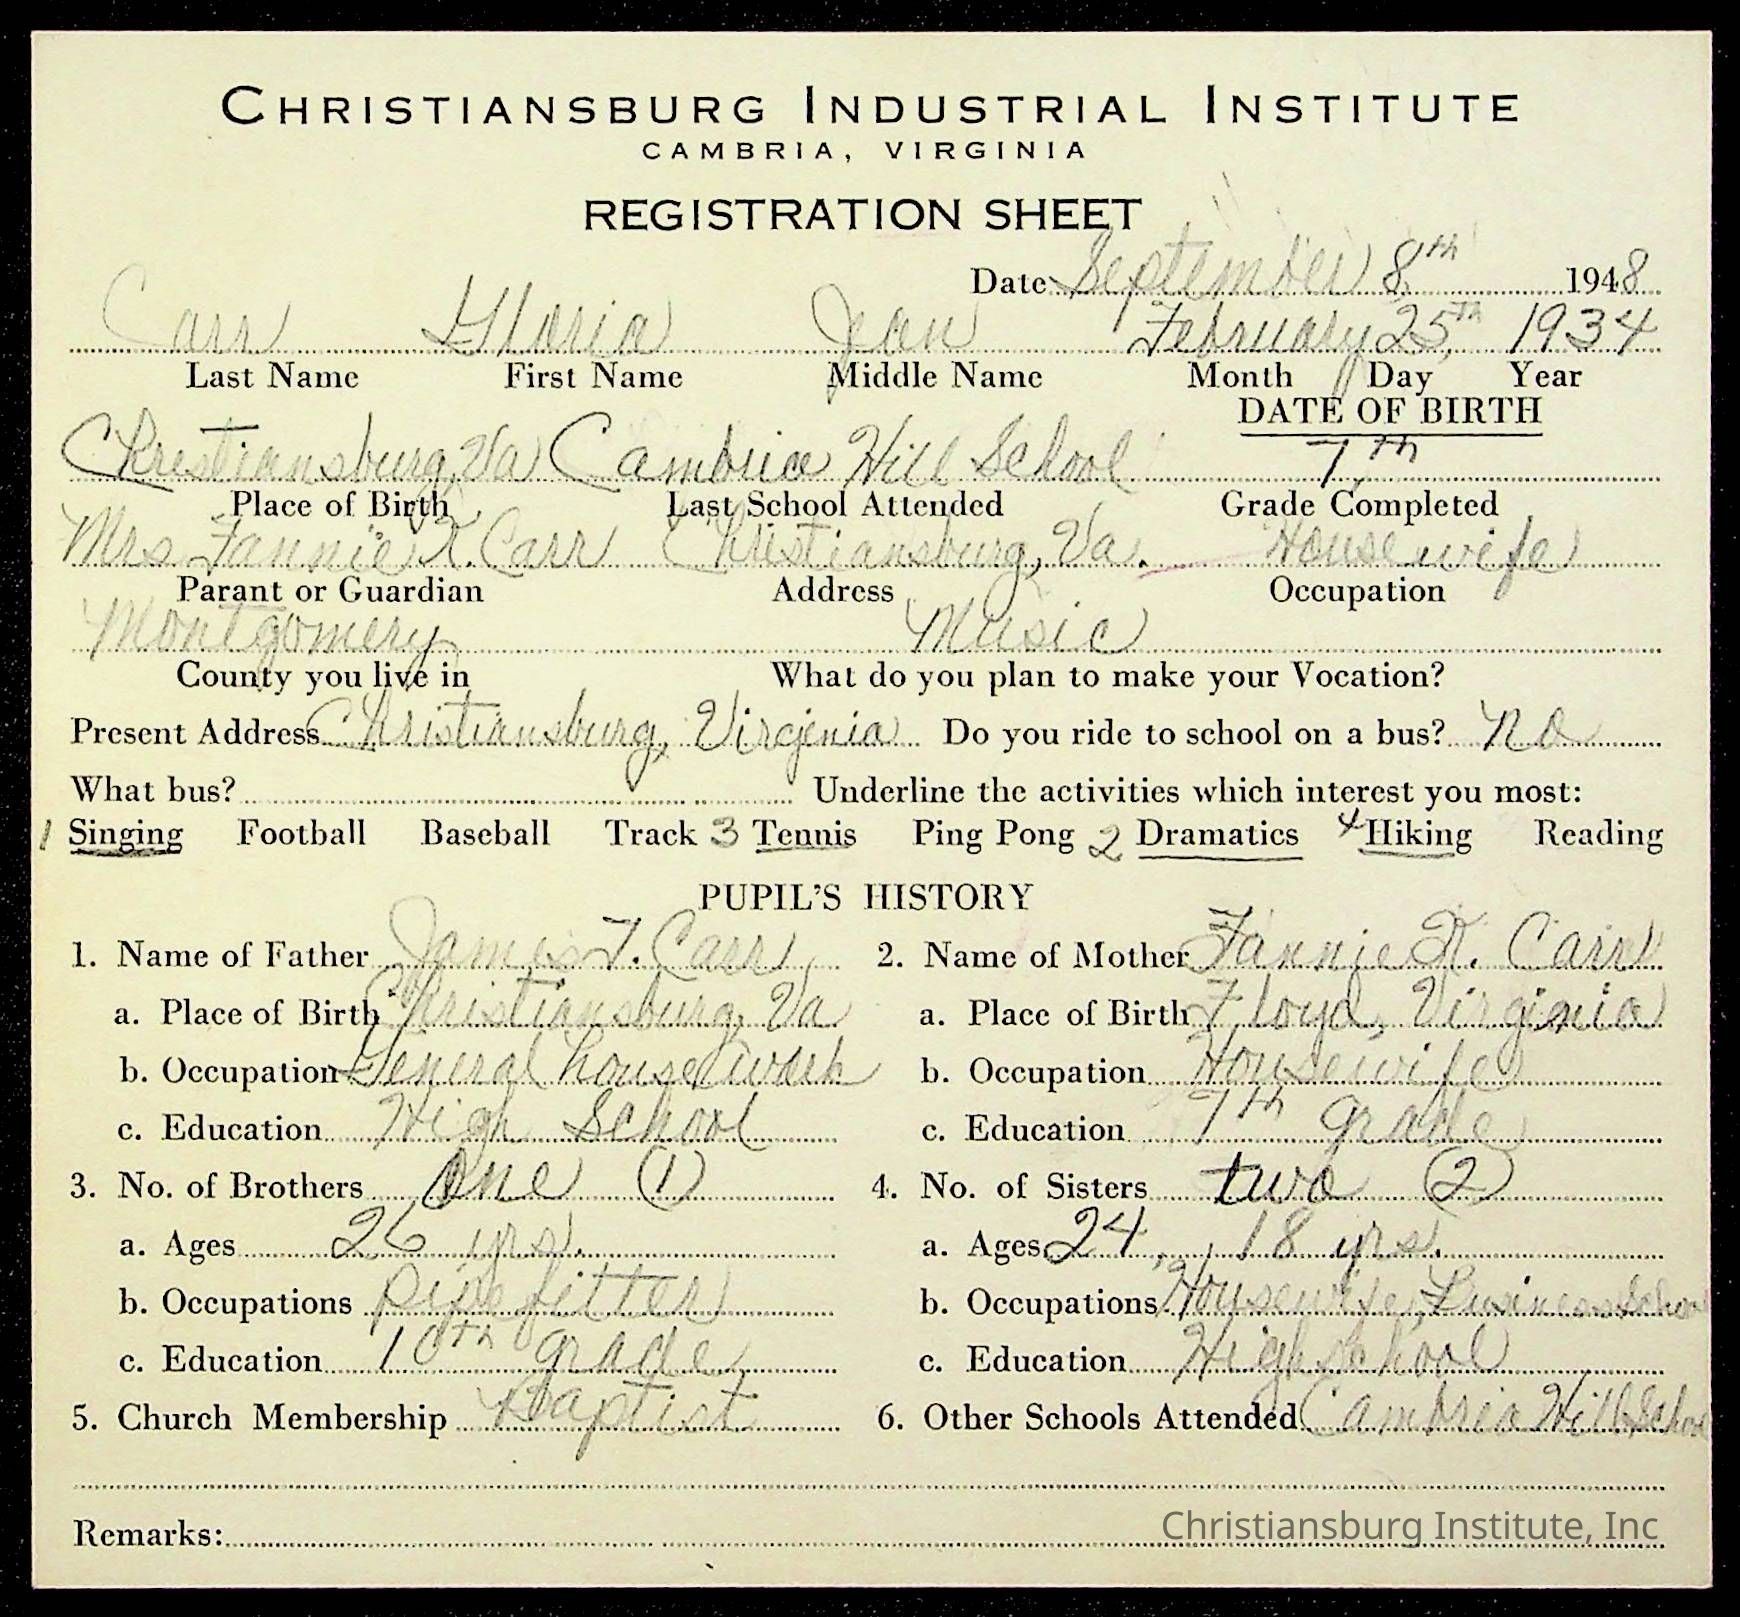 CHRISTIANSBURG INDUSTRIAL INSTITUTE
CAMBRIA, VIRGINIA
REGISTRATION SHEET
Date September 8th 1948
Carr Gloria Jean February 25th 1934
Last Name First Name Middle Name Month Day Year
DATE OF BIRTH
Christiansburg, Va Cambria Hill School 7th
Place of Birth Last School Attended Grade Completed
Mrs. Fannie K. Carr Christiansburg, Va. Housewife
Parant or Guardian Address Occupation
Montgomery Music
County you live in What do you plan to make your Vocation?
Present Address Christiansburg, Virginia Do you ride to school on a bus? No
What bus? Underline the activities which interest you most:
1 Singing Football Baseball Track 3 Tennis Ping Pong 2 Dramatics 4 Hiking Reading
PUPIL'S HISTORY
1. Name of Father James T. Carr 2. Name of Mother Fannie K. Carr
a. Place of Birth Christiansburg, Va a. Place of Birth Floyd, Virginia
b. Occupation General house work b. Occupation Housewife
c. Education High School c. Education 7th grade
3. No. of Brothers One (1) 4. No. of Sisters two (2)
a. Ages 26 yrs. a. Ages 24, 18 yrs.
b. Occupations pipe fitter b. Occupations Housewife, Business School
c. Education 10th grade c. Education High school
5. Church Membership Baptist 6. Other Schools Attended Cambria Hill School
Remarks:
Christiansburg Institute, Inc